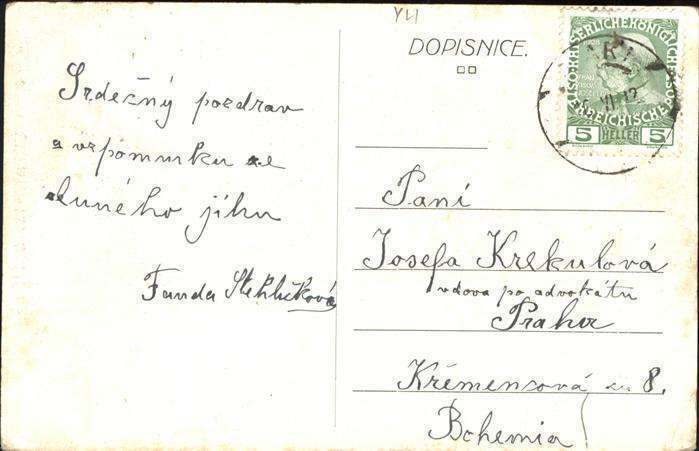 DOPISNICE.
Srdečný pozdrav
a vzpomínku ze
slunného jihu
Fanda Stehlíková
KAISERLICHE KÖNIGLICHE ÖSTERREICHISCHE POST
5 HELLER 5
Paní
Josefa Krekulová
vdova po advokátu
Praha
Křemencová 8.
Bohemia